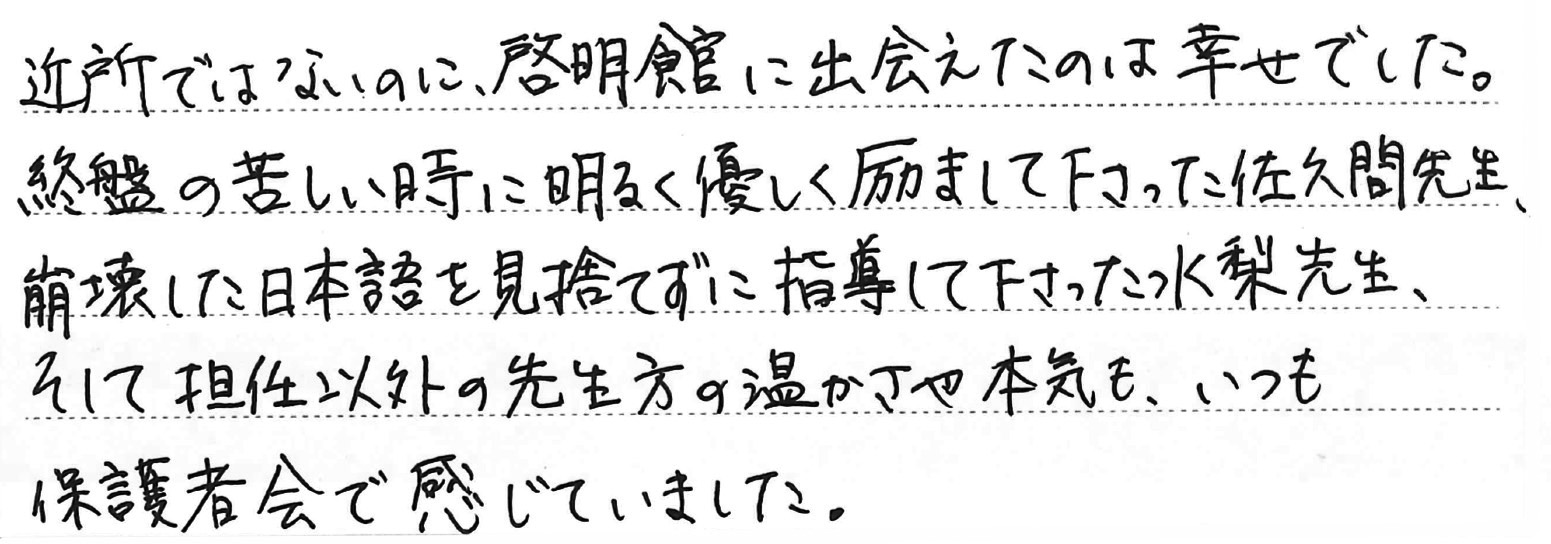 近所ではないのに、啓明館に出会えたのは幸せでした。
終盤の苦しい時に明るく優しく励まして下さった佐久間先生、
崩壊した日本語を見捨てずに指導して下さった水梨先生、
そして担任以外の先生方の温かさや本気も、いつも
保護者会で感じていました。